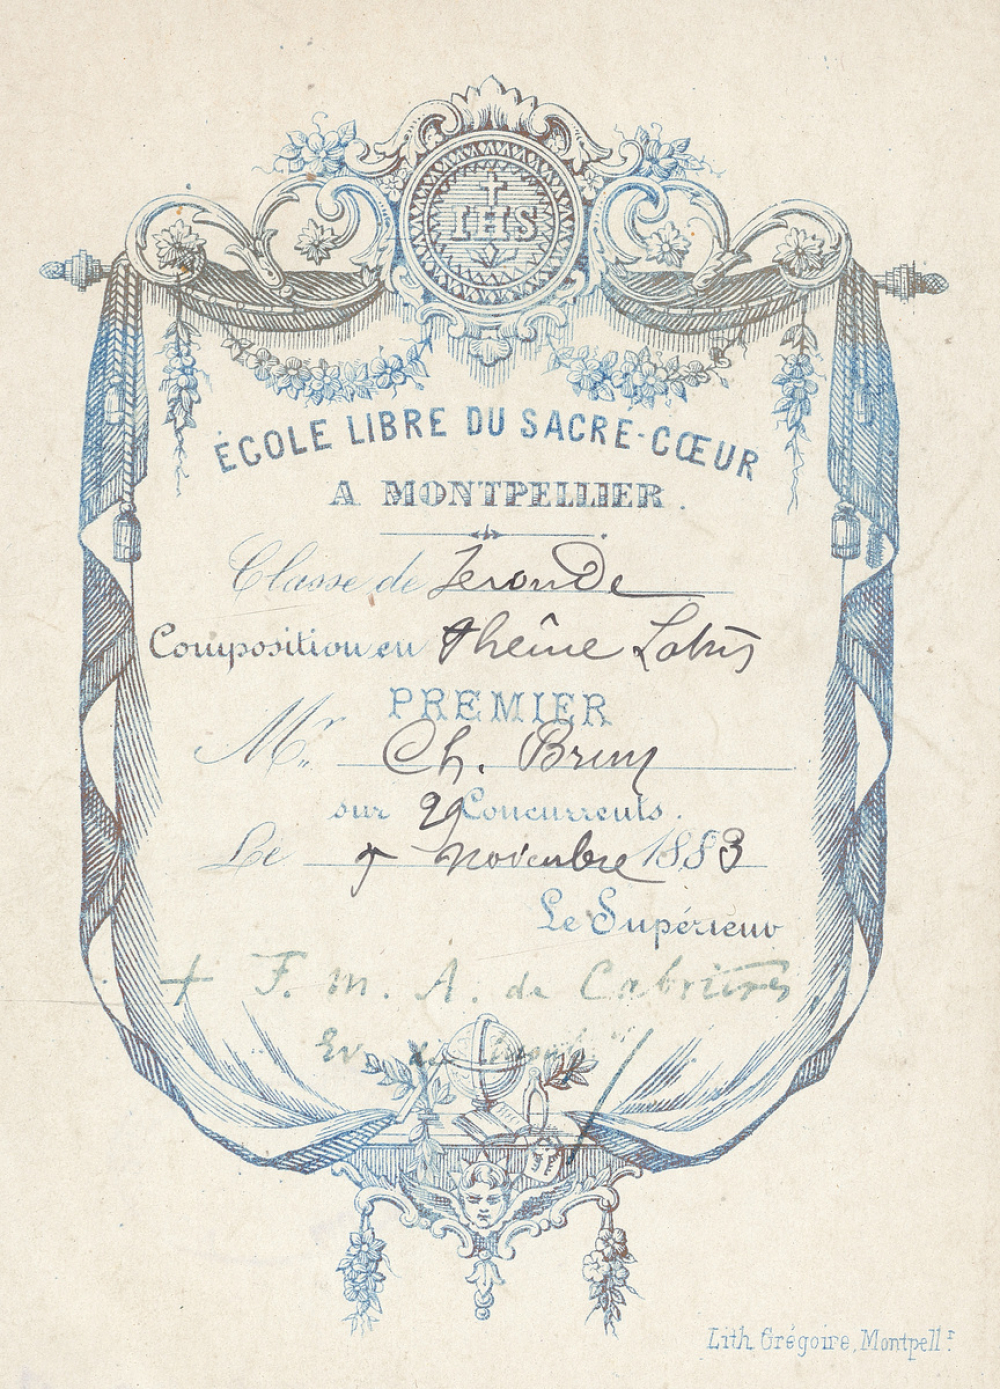 IHS
ÉCOLE LIBRE DU SACRÉ-CŒUR
A MONTPELLIER.
Classe de Seconde
Composition en thême Latin
PREMIER
Mr. Ch. Brun
sur 29 Concurrents.
Le 9 novembre 1883
Le Supérieur
+ F. M. A. de Cabrières
Ev. de
Lith Grégoire, Montpell.r